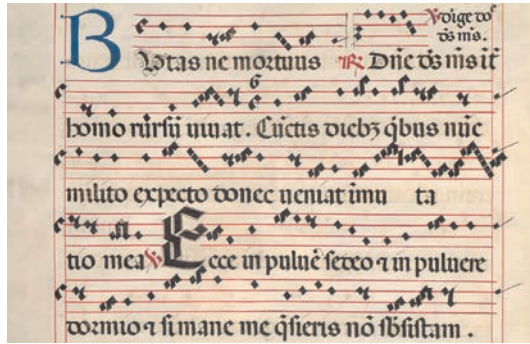 utas ne mortuus ℟ Dñe ds ms
homo rursũ uiuat . Cũctis diebꝫ qͥbus nũc
milito expecto donec ueniat ĩmu ta
tio mea ℣ Ecce in puluẽ sedeo ⁊ in puluere
dormio ⁊ si mane me q̃sieris nõ sb̃sistam .